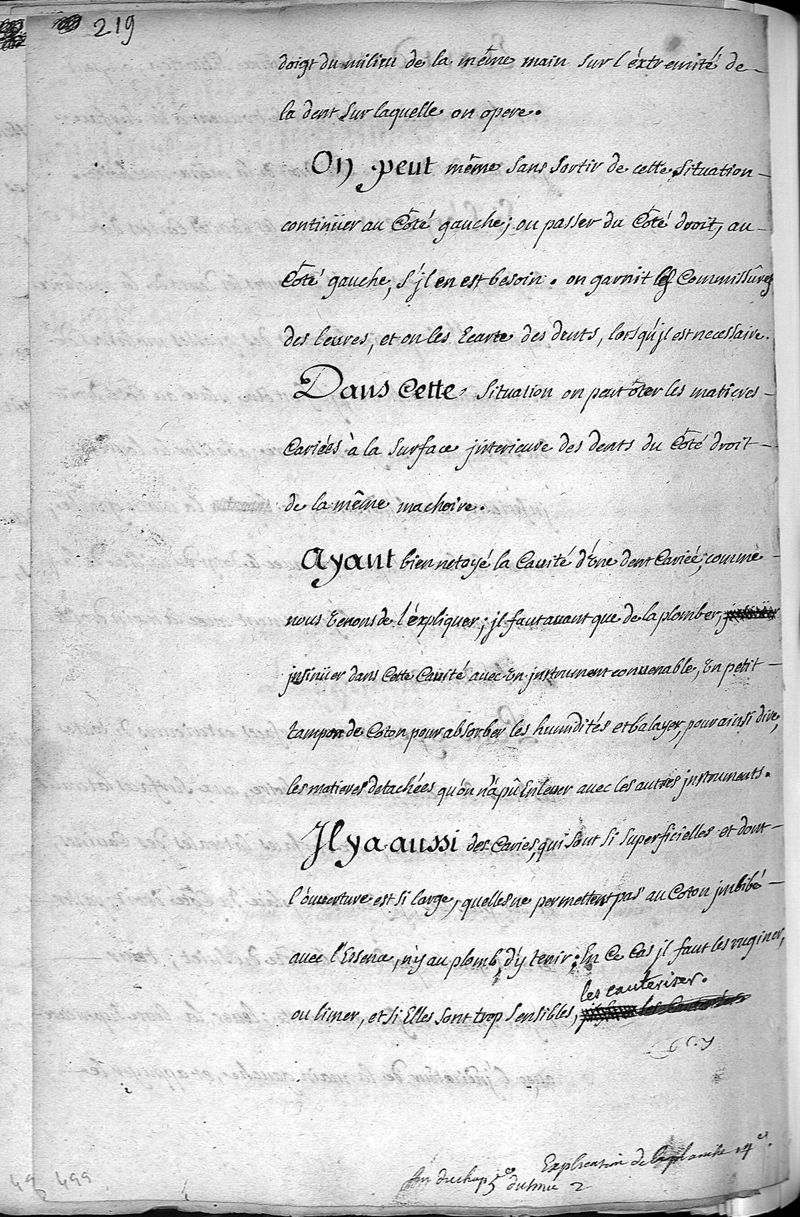 219
doigt du milieu de la même main sur l'éxtremité de
la dent sur laquelle on opere.
On peut même sans sortir de cette situation
continüer au Côté gauche; ou passer du Côté droit, au
Côté gauche, s'jl en est besoin. on garnit les Commissûres
des levres, et on les Ecarte des dents, lorsqu'jl est necessaire.
Dans Cette situation on peut ôter les matieres
Cariées à la surface jnterieure des dents du Côté droit
de la même machoire.
Ayant bien netoyé la Cavité d'Une dent Cariée, comme
nous Venons de l'éxpliquer; jl faut avant que de la plomber,
jnsinüer dans Cette Cavité avec Un jnstrument convenable, Un petit
tampon de Coton pour absorber les humidités et balayer, pour ainsi dire,
les matieres detachées qu'on n'a pû Enlever avec les autres jnstruments.
Jl y a aussi des Caries, qui sont si superficielles et dont
l'ouverture est si large, quelles ne permettent pas au Coton jmbibé
avec l'Essence, n'y au plomb, d'y tenir; En Ce Cas jl faut les ruginer,
les cauteriser.
ou limer, et si Elles sont trop sensibles,
Explication de la planche 14e.
fin du chap 5e du tome 2
49 499